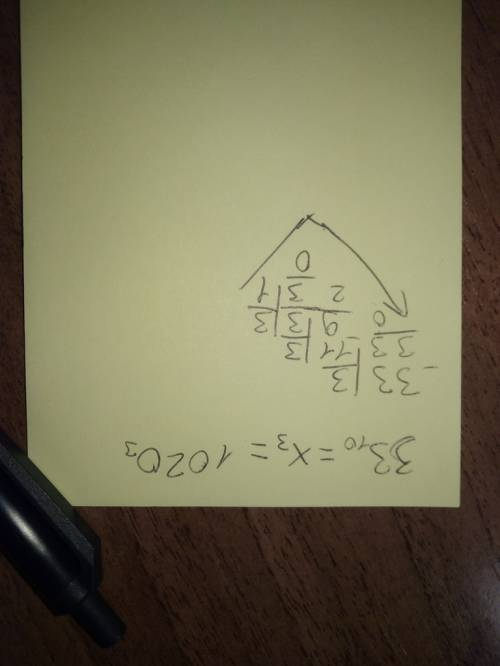 33₁₀ = x₃ = 1020₃
-33 |3
33 -11 |3
0 9 3 |3
2 3 1
0